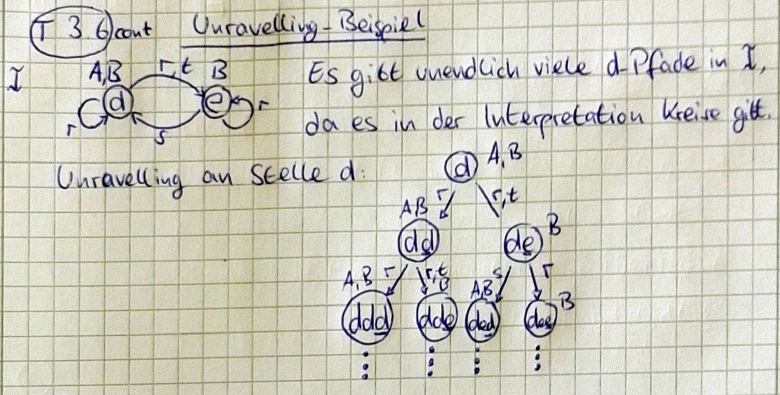 T 3.6 cont Unravelling-Beispiel
I A,B r,t B Es gibt unendlich viele d-Pfade in I,
r d e r
s da es in der Interpretation Kreise gibt.
Unravelling an Stelle d: d A,B
A,B r r,t
dd de B
A,B r r,t B A,B s r
ddd dde ded dee B